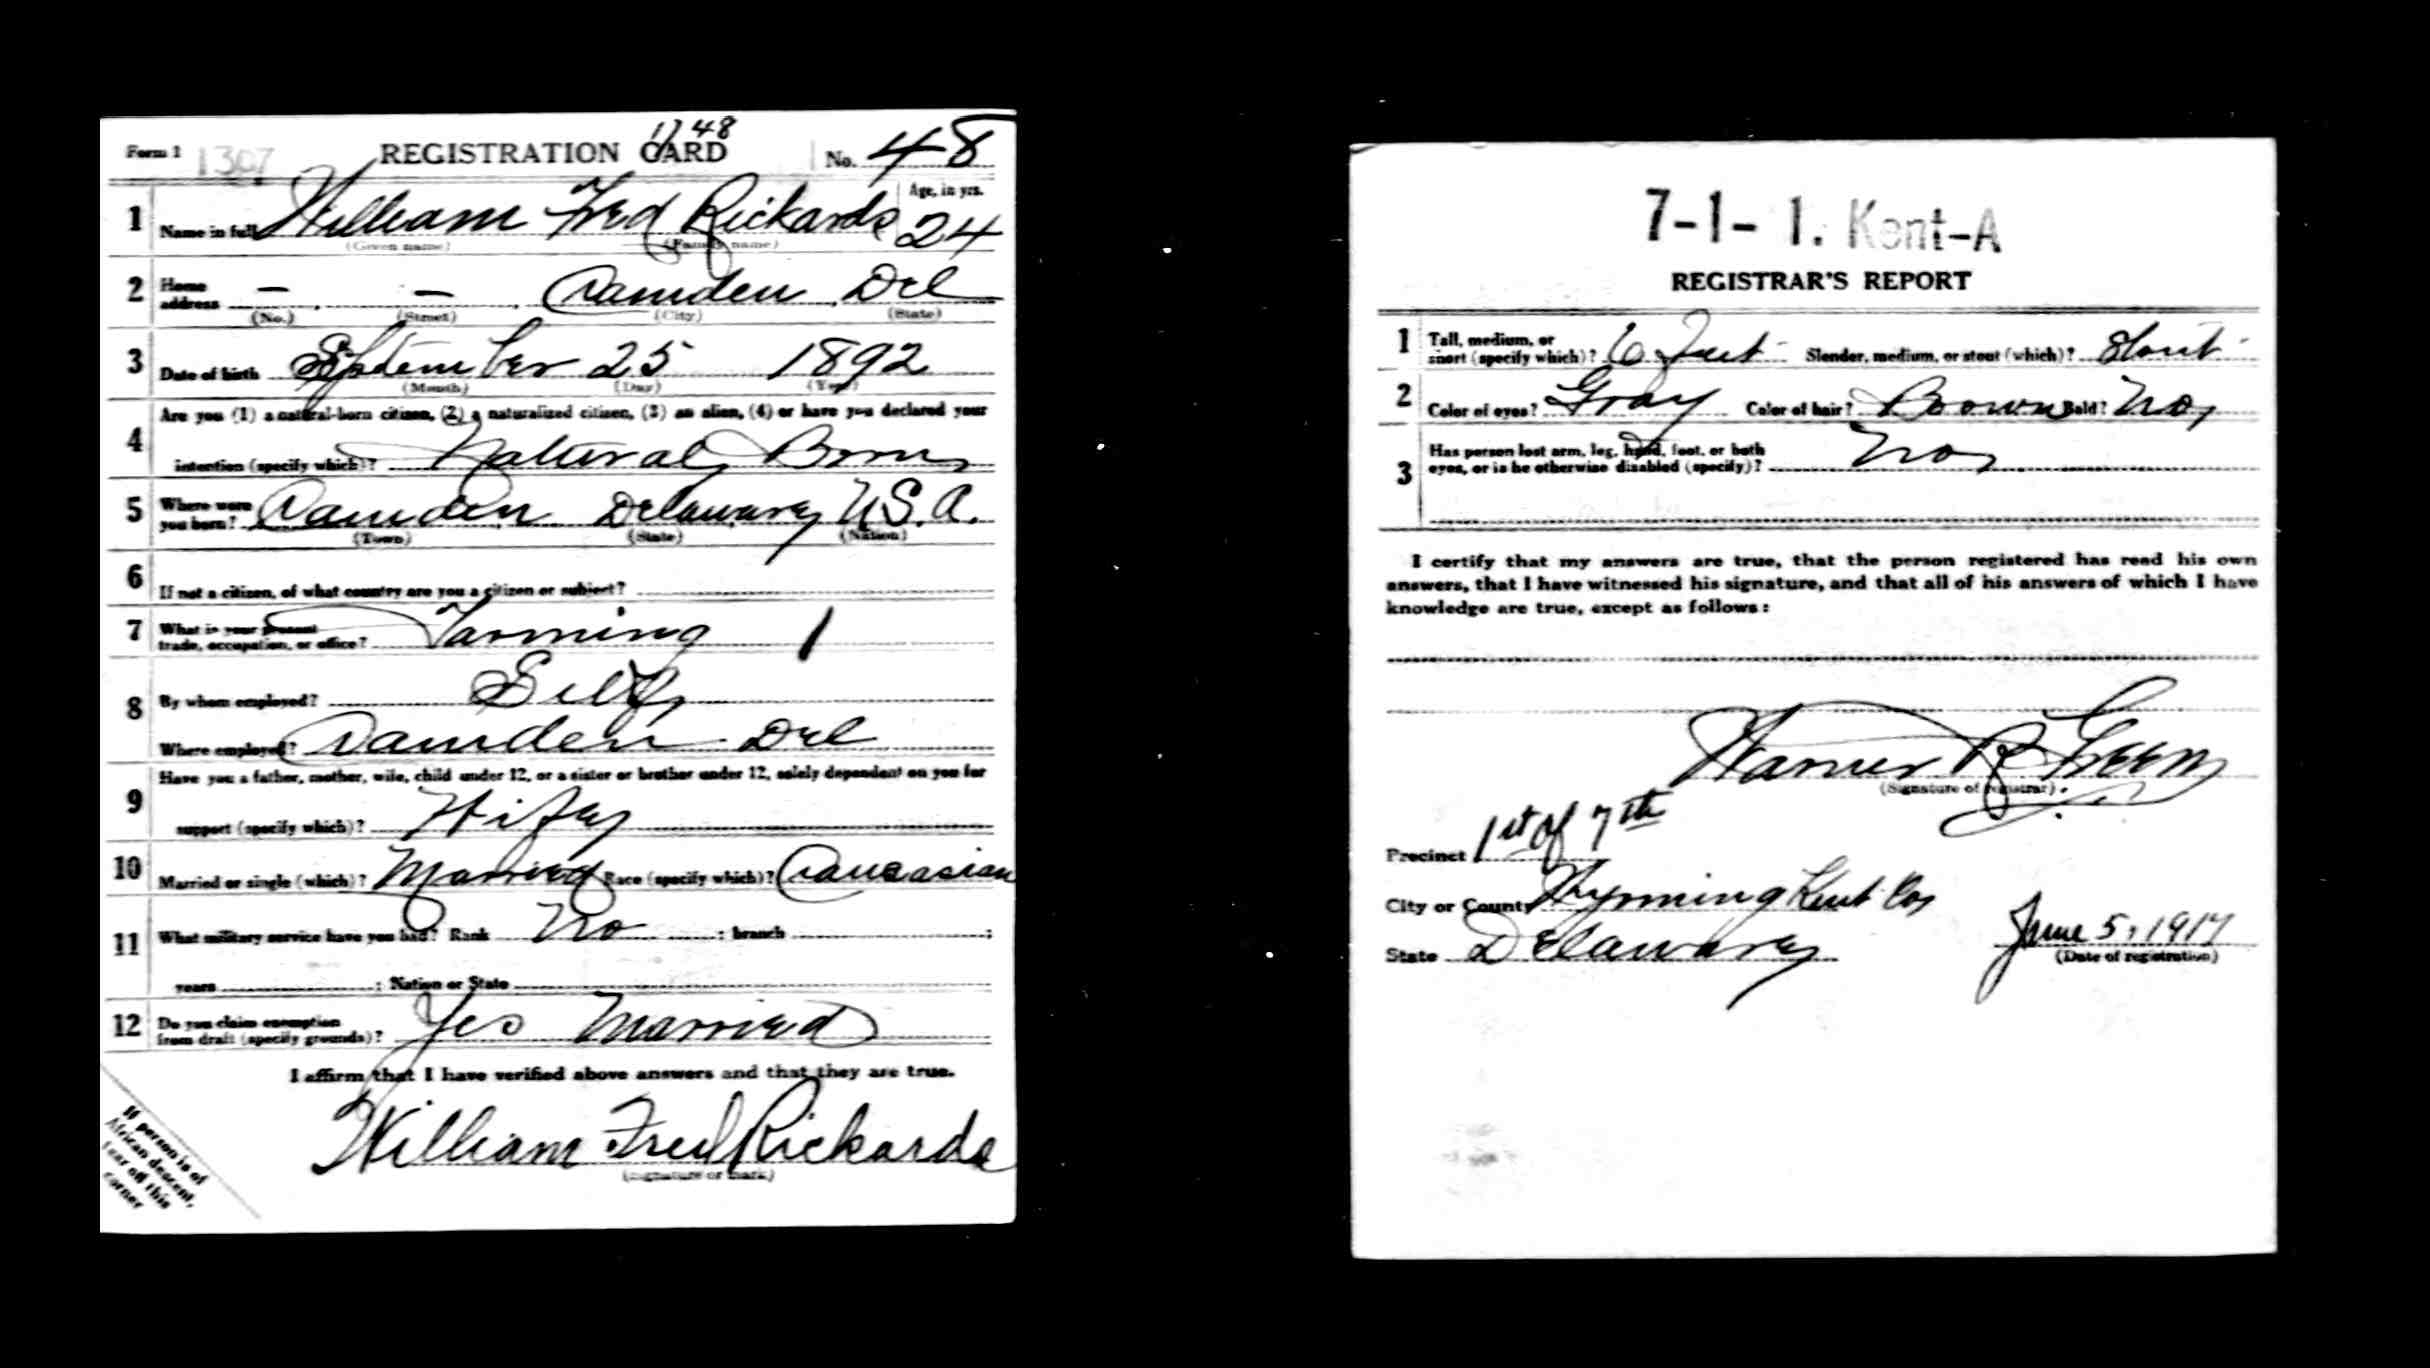 17 48
Form 1 1307 REGISTRATION CARD No. 48
1 Name in full William Fred Rickards Age, in yrs. 24
(Given name) (Family name)
2 Home address — — Camden Del
(No.) (Street) (City) (State)
3 Date of birth September 25 1892
(Month) (Day) (Year)
4 Are you (1) a natural-born citizen, (2) a naturalized citizen, (3) an alien, (4) or have you declared your
intention (specify which)? Natural Born
5 Where were you born? Camden Delaware U.S.A.
(Town) (State) (Nation)
6 If not a citizen, of what country are you a citizen or subject?
7 What is your present trade, occupation, or office? Farming 1
8 By whom employed? Self
Where employed? Camden Del
9 Have you a father, mother, wife, child under 12, or a sister or brother under 12, solely dependent on you for
support (specify which)? Wife
10 Married or single (which)? Married Race (specify which)? Caucasian
11 What military service have you had? Rank No ; branch ;
years ; Nation or State
12 Do you claim exemption from draft (specify grounds)? Yes Married
I affirm that I have verified above answers and that they are true.
William Fred Rickards
(Signature or mark)
If person is of
African descent,
tear off this
corner
7-1- 1. Kent-A
REGISTRAR'S REPORT
1 Tall, medium, or short (specify which)? 6 Feet Slender, medium, or stout (which)? Stout
2 Color of eyes? Gray Color of hair? Brown Bald? No
3 Has person lost arm, leg, hand, foot, or both eyes, or is he otherwise disabled (specify)? No
I certify that my answers are true, that the person registered has read his own
answers, that I have witnessed his signature, and that all of his answers of which I have
knowledge are true, except as follows:
Warner R Green
(Signature of registrar)
Precinct 1st of 7th
City or County Wyoming Kent Co
State Delaware June 5, 1917
(Date of registration)